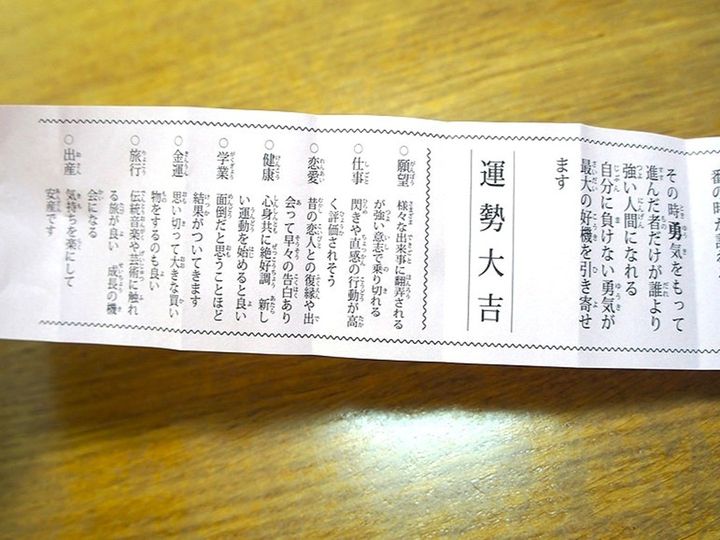 その時勇気をもって
進んだ者だけが誰より
強い人間になれる
自分に負けない勇気が
最大の好機を引き寄せ
ます
運勢大吉
○願望 様々な出来事に翻弄される
が強い意志で乗り切れる
○仕事 閃きや直感の行動が高
評価されそう
○恋愛 昔の恋人との復縁や出
会って早々の告白あり
○健康 心身共に絶好調 新し
い運動を始めると良い
○学業 面倒だと思うことほど
結果がついてきます
○金運 思い切って大きな買い
物をするのも良い
○旅行 伝統音楽や芸術に触れ
る旅が良い 成長の機
会になる
○出産 気持ちを楽にして
安産です